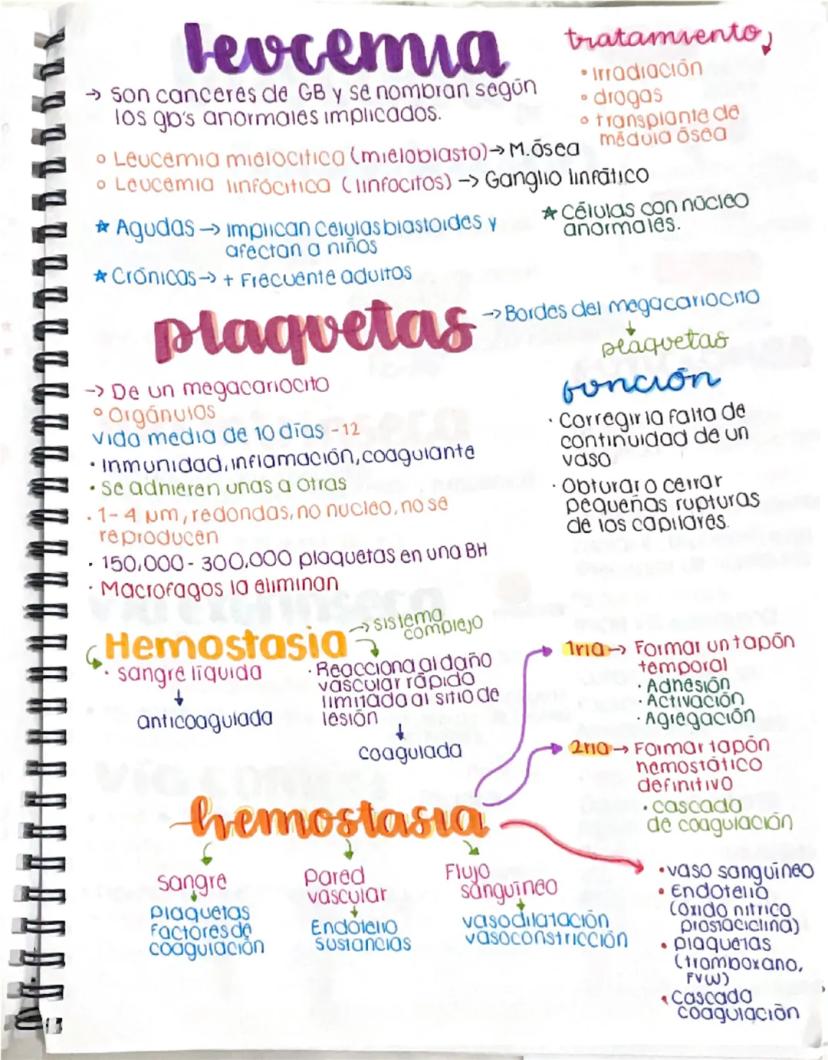 leucemia
→ son canceres de GB y se nombran según
los gb's anormales implicados.
tratamiento
• irradiación
• drogas
• transplante de
médula ósea
◦ Leucemia mielocítica (mieloblasto) → M. Ósea
◦ Leucemia linfócitica (linfocitos) → Ganglio linfático
★ Agudas → implican células blastoides y
afectan a niños
★ Células con núcleo
anormales.
★ Crónicas → + Frecuente adultos
plaquetas
→ Bordes del megacariocito
↓
plaquetas
→ De un megacariocito
◦ Orgánulos
vida media de 10 días - 12
• Inmunidad, inflamación, coagulante
• se adhieren unas a otras
• 1-4 µm, redondas, no nucleo, no se
reproducen
• 150,000 - 300,000 plaquetas en una BH
• Macrofagos la eliminan
función
• Corregir la falta de
continuidad de un
vaso
• Obturar o cerrar
pequeñas rupturas
de los capilares.
Hemostasia → sistema
complejo
• sangre líquida
↓
anticoagulada
• Reacciona al daño
vascular rápido
limitada al sitio de
lesión
↓
coagulada
1ria → Formar un tapón
temporal
• Adhesión
• Activación
• Agregación
2ria → Formar tapón
hemostático
definitivo
• cascada
de coagulación
hemostasia
sangre
↓
plaquetas
factores de
coagulación
pared
vascular
↓
Endotelio
sustancias
Flujo
sanguíneo
↓
vasodilatación
vasoconstricción
• vaso sanguíneo
• Endotelio
(óxido nítrico
prostaciclina)
• plaquetas
(tromboxano,
FVW)
• cascada
coagulación